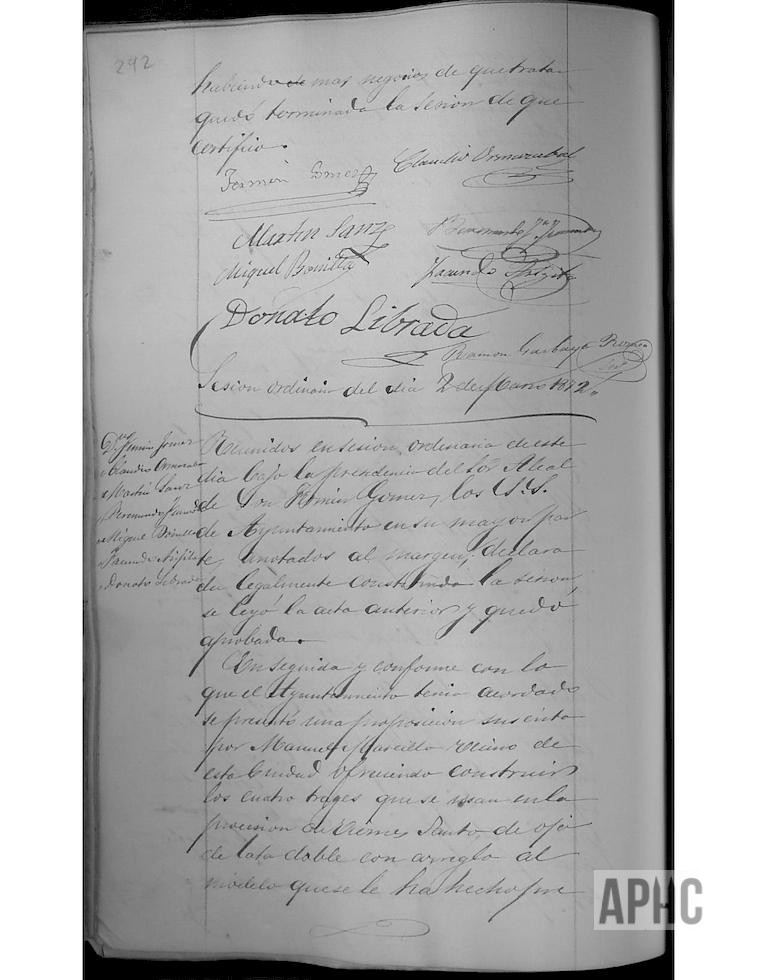 242
habiendo de mas negocios de que tratar
quedó terminada la Sesion de que
certifico.
Fermin Gomez
Claudio Ormazabal
Martin Sanz
Miguel Bonilla
Facundo
Donato Librada
Ramon Garbayo
Sesion ordinaria del dia 2 de Marzo 1892
D.n Fermin Gomez
Claudio Ormazabal
Martin Sanz
Miguel Bonilla
Facundo
Donato Librada
Reunidos en sesion ordinaria de este
dia bajo la presidencia del Sor Alcal
de Don Fermin Gomez, los S.S.
de Ayuntamiento en su mayor par
te, anotados al margen; declara
da legalmente constituida la sesion,
se leyó la acta anterior y quedó
aprobada.
En seguida y conforme con lo
que el Ayuntamiento tenia acordado
se presentó una proposicion suscrita
por Manuel Marcilla vecino de
esta Ciudad ofreciendo construir
los cuatro trages que se usan en la
procesion de Viernes Santo de oja
de lata doble con arreglo al
modelo que se le ha hecho pre
APHC